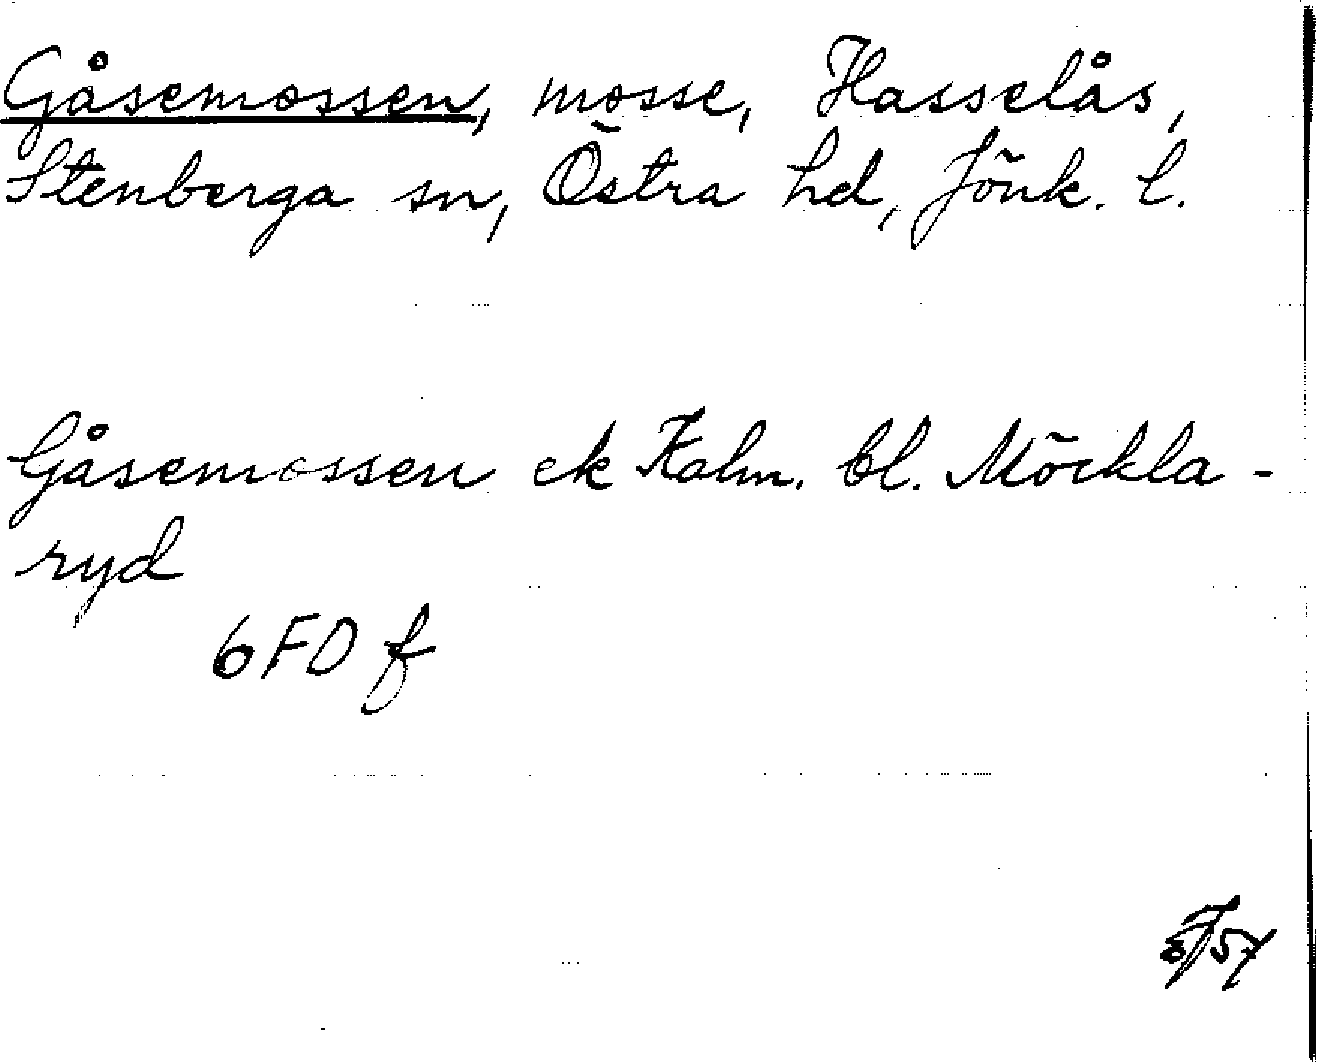 Gåsemossen, mosse, Hasselås,
Stenberga sn, Östra hd, Jönk. l.
Gåsemossen ek Kalm. bl. Möckla-
ryd
6 FD f